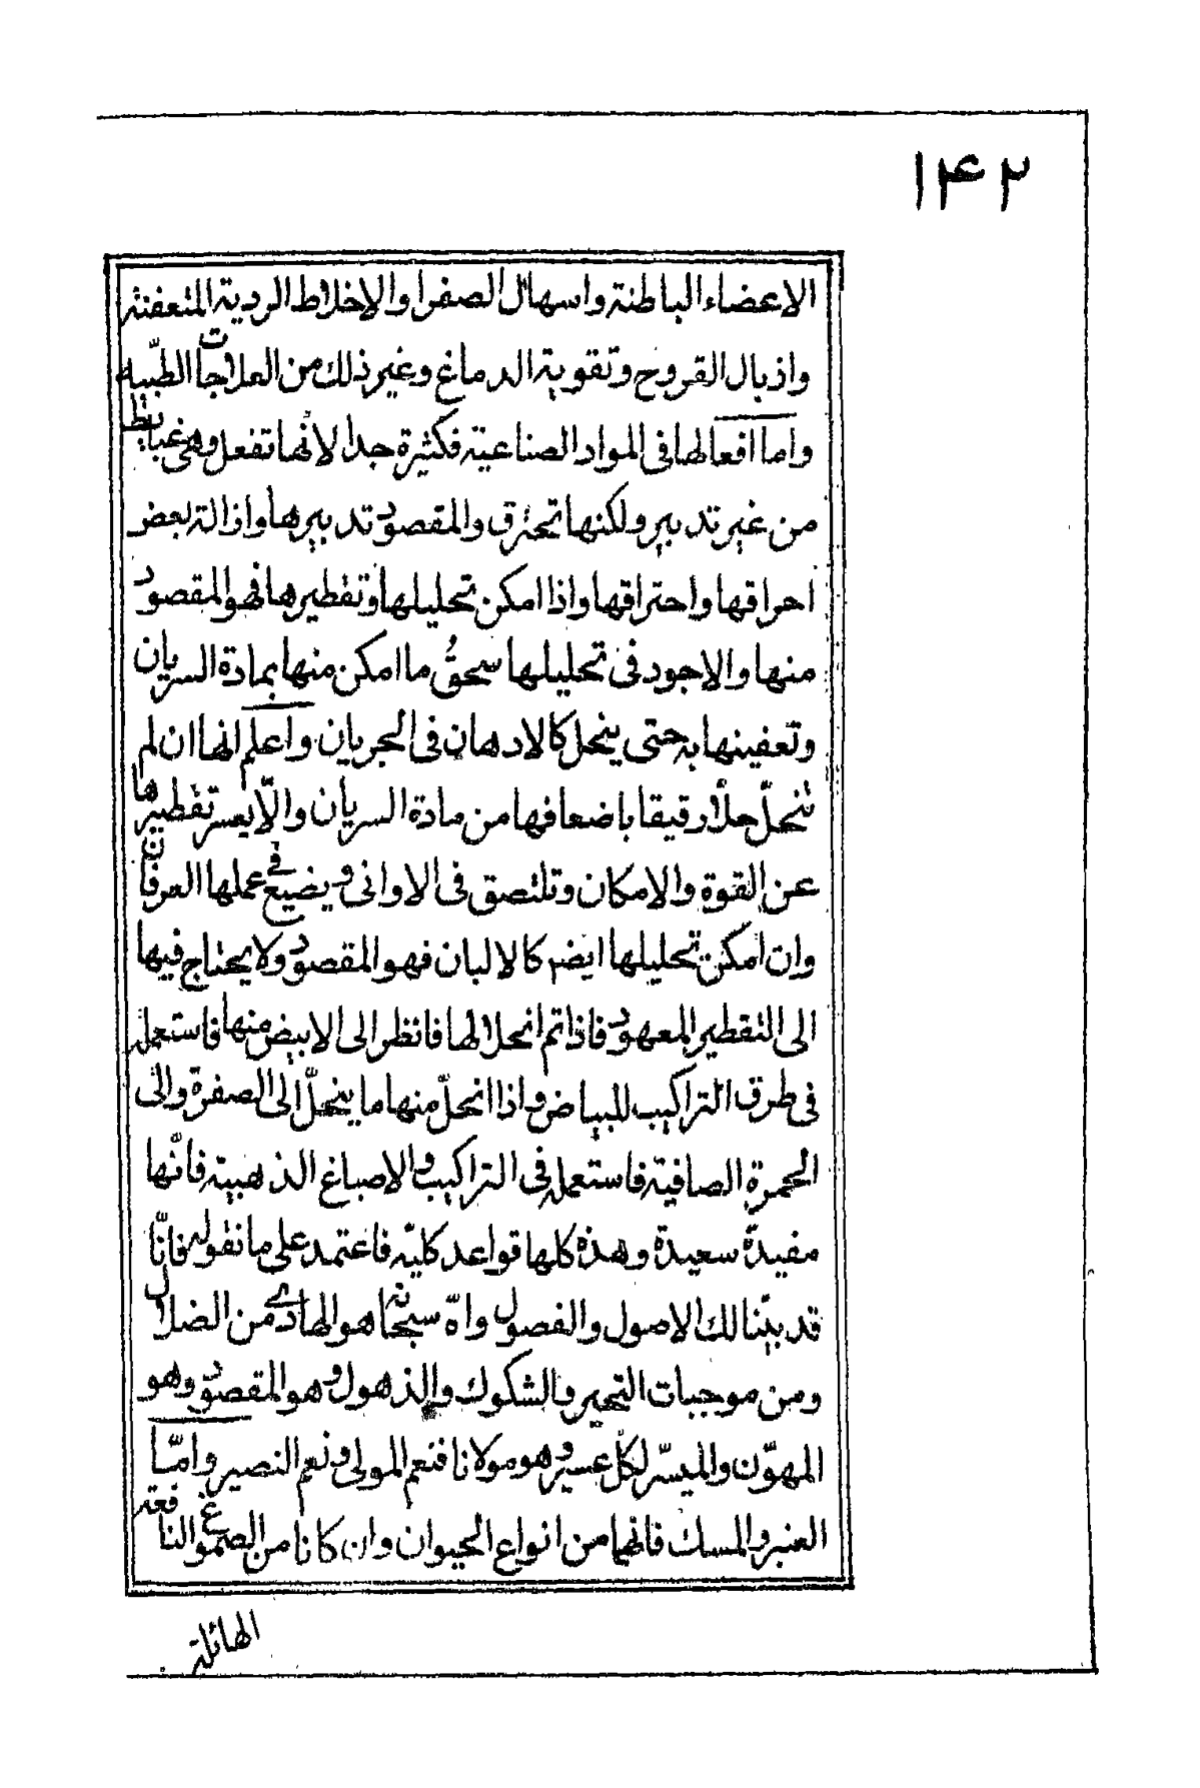 ۱۴۲
الاعضاء الباطنة واسهال الصفرا والاخلاط الردية المتعفنة
واذبال القروح وتقوية الدماغ وغير ذلك من العلاجات الطبّيه
واما افعالها فى المواد الصناعية فكثيرة جدا لانّها تفعل وهى غبايط
من غير تدبير ولكنها تحترق والمقصود تدبيرها وازالة بعض
احراقها واحتراقها واذا امكن تحليلها وتقطيرها فهو المقصود
منها والاجود فى تحليلها سحقُ ما امكن منها بمادة السريان
وتعفينها به حتى ينحل كالادهان فى الجريان واعلم انها ان لم
تنحلّ حلّا رقيقا باضعافها من مادة السريان والّا يعسر تقطيرها
عن القوة والامكان وتلتصق فى الاوانى ويضيع فى عملها العرفان
وان امكن تحليلها ايضم كالالبان فهو المقصود ولا يحتاج فيها
الى التقطير المعهود فاذا تم انحلالها فانظر الى الابيض منها فاستعمله
فى طرق التراكيب للبياض واذا انحلّ منها ما ينحلّ الى الصفرة والى
الحمرة الصافية فاستعمله فى التراكيب والاصباغ الذهبية فانّها
مفيدة سعيدة وهذه كلها قواعد كليّه فاعتمد على ما نقوله فانّا
قد بيّنا لك الاصول والفصول واه سبحانه هو الهادى من الضلال
ومن موجبات التحير والشكوك والذهول وهو المقصود وهو
المهوّن والميسّر لكلّ عسير وهو مولانا فنعم المولى ونعم النصير وامّا
العنبر والمسك فانهما من انواع الحيوان وان كانا من الصموغ النافعة
الهائلة